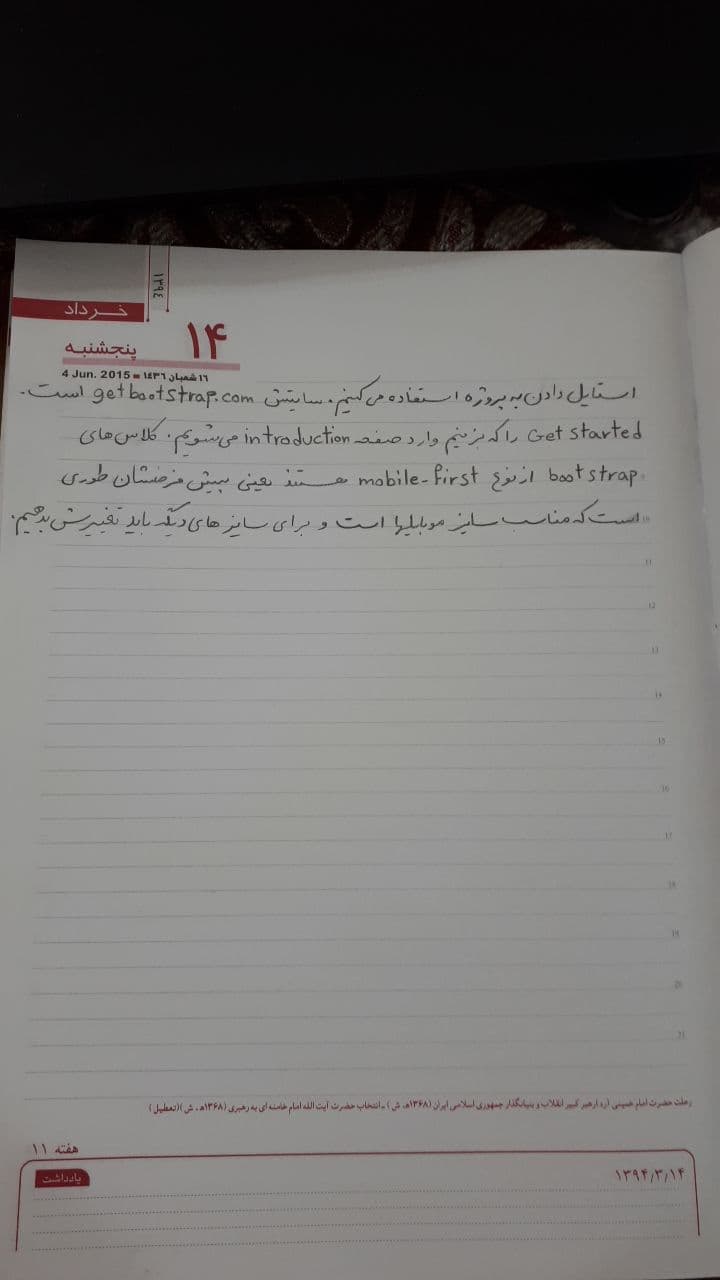 ۱۳۹۴
خرداد
۱۴
پنجشنبه
4 Jun. 2015 ■ ۱٦شعبان ۱٤۳٦
استایل دادن به پروژه استفاده می‌کنیم. سایتش getbootstrap.com است.
Get started را که بزنیم وارد صفحه introduction می‌شویم. کلاس‌های
bootstrap از نوع mobile-first هستند یعنی پیش فرضشان طوری
است که مناسب سایز موبایلها است و برای سایز های دیگه باید تغییرش بدهیم.
10
11
12
13
14
15
16
17
18
19
20
21
رحلت حضرت امام خمینی (ره) رهبر کبیر انقلاب و بنیانگذار جمهوری اسلامی ایران (۱۳۶۸ه‍. ش) ـ انتخاب حضرت آیت الله امام خامنه ای به رهبری (۱۳۶۸ه‍. ش)(تعطیل)
هفته ۱۱
۱۳۹۴/۳/۱۴
یادداشت